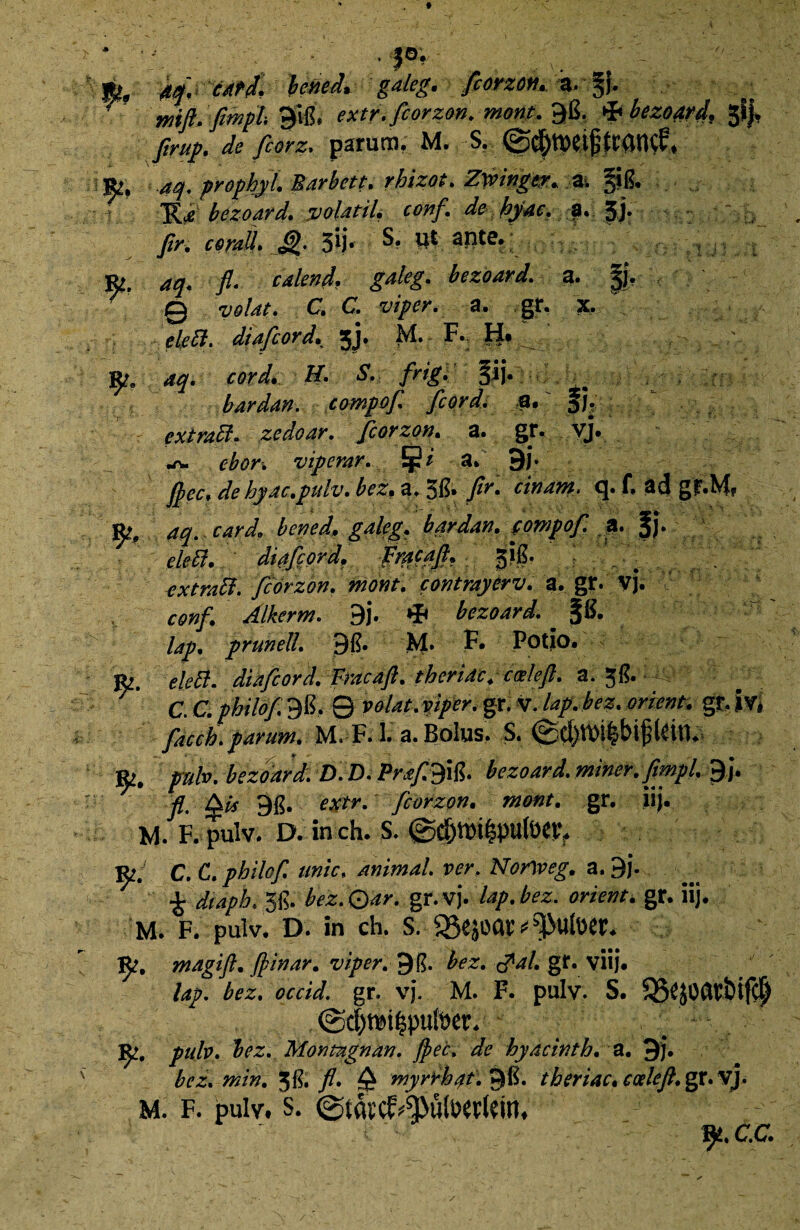 50.
℞. aq. card. bened. galeg. ſcorzon. a. ℥j.
miſt. ſimpl. ℈iß. extr. ſcorzon. mont. ℈ß. ✠ bezoard. ʒij.
ſirup. de ſcorz. parum. M. S. Schweißtranck.
℞. aq. prophyl. Barbett. rhizot. Zwinger. a. ℥iß.
bezoard. volatil. conf. de hyac. a. ʒj.
ſir. corall. ʒij. S. ut ante.
℞. aq. fl. calend. galeg. bezoard. a. ℥j.
volat. C. C. viper. a. gr. x.
elect. diaſcord. ʒj. M. F. H.
℞. aq. cord. H. S. frig. ℥ij.
bardan. compoſ. ſcord. a. ℥j.
extract. zedoar. ſcorzon. a. gr. vj.
ebor. viperar. a. ℈j.
ſpec. de hyac. pulv. bez. a. ʒß. ſir. cinam. q. ſ. ad gr.M.
℞. aq. card. bened. galeg. bardan. compoſ. a. ℥j.
elect. diaſcord. Fracaſt. ʒiß.
extract. ſcorzon. mont. contrayerv. a. gr. vj.
conf. Alkerm. ℈j. ✠ bezoard. ℥ß.
lap. prunell. ℈ß. M. F. Potio.
℞. elect. diaſcord. Fracaſt. theriac. cœleſt. a. ʒß.
C. C. philoſ. ℈ß. volat. viper. gr. v. lap. bez. orient. gr. iv.
ſacch. parum. M. F. l. a. Bolus. S. Schwitzbißlein.
℞. pulv. bezoard. D. D. Præſ. ℈iß. bezoard. miner. ſimpl. ℈j.
fl. 🜍is ℈ß. extr. ſcorzon. mont. gr. iij.
M. F. pulv. D. in ch. S. Schwitzpulver.
℞. C. C. philoſ. unic. animal. ver. Norweg. a. ℈j.
diaph. ʒß. bez. ☉ar. gr. vj. lap. bez. orient. gr. iij.
M. F. pulv. D. in ch. S. Bezoar-Pulver.
℞. magiſt. ſpinar. viper. ℈ß. bez. ♂al. gr. viij.
lap. bez. occid. gr. vj. M. F. pulv. S. Bezoardiſch
Schwitzpulver.
℞. pulv. bez. Montagnan. ſpec. de hyacinth. a. ℈j.
bez. min. ʒß. fl. 🜍 myrrhat. ℈ß. theriac. cœleſt. gr. vj.
M. F. pulv. S. Stärck-Pülverlein.
℞. C.C.